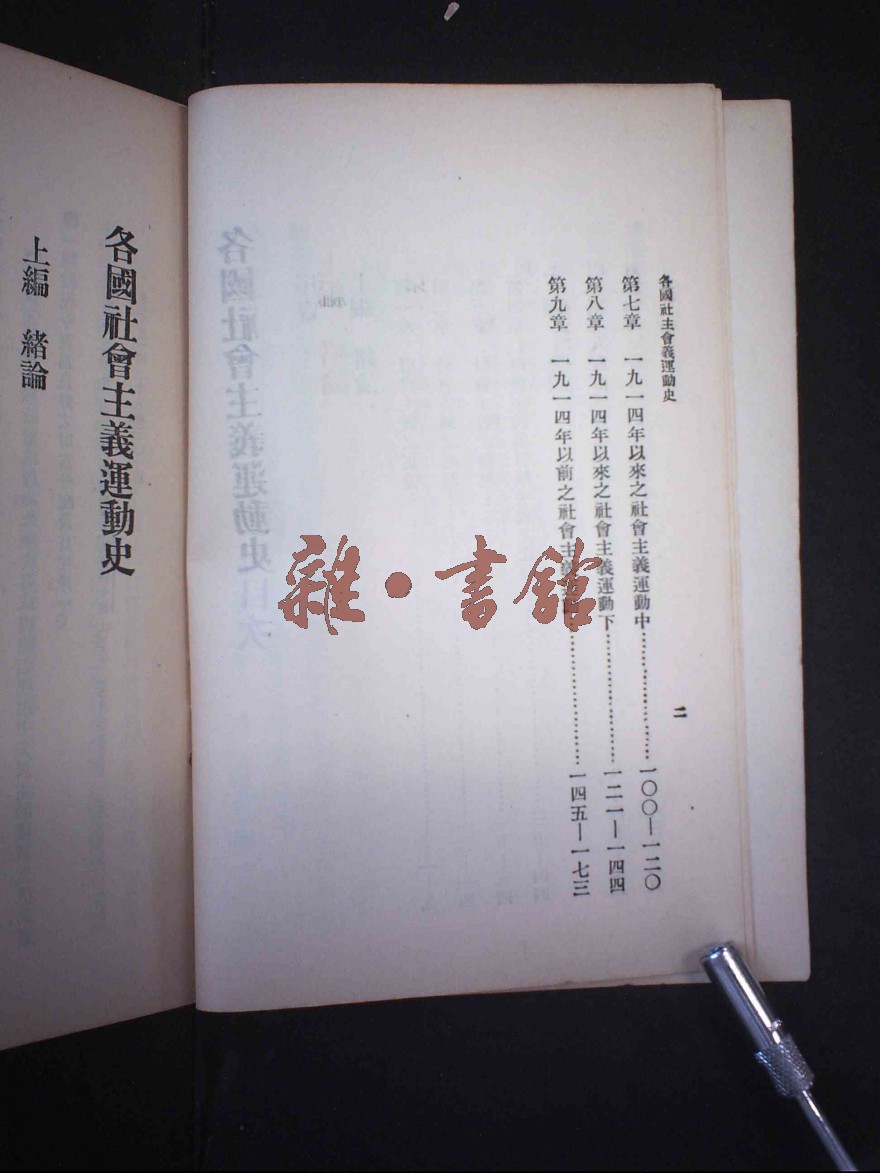 各國社主會義運動史
第七章　一九一四年以來之社會主義運動中…………………一〇〇—一二〇
第八章　一九一四年以來之社會主義運動下…………………一二一—一四四
第九章　一九一四年以前之社會主義…………………一四五—一七三
二
各國社會主義運動史
上編　緒論
雜·書館